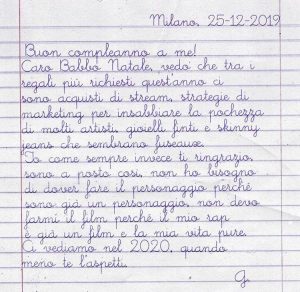 Milano, 25-12-2019
Buon compleanno a me!
Caro Babbo Natale, vedo che tra i
regali più richiesti quest'anno ci
sono acquisti di stream, strategie di
marketing per insabbiare la pochezza
di molti artisti, gioielli finti e skinny
jeans che sembrano fuseaux.
Io come sempre invece ti ringrazio,
sono a posto così, non ho bisogno
di dover fare il personaggio perché
sono già un personaggio, non devo
farmi il film perché il mio rap
è già un film e la mia vita pure.
Ci vediamo nel 2020, quando
meno te l'aspetti.
G.